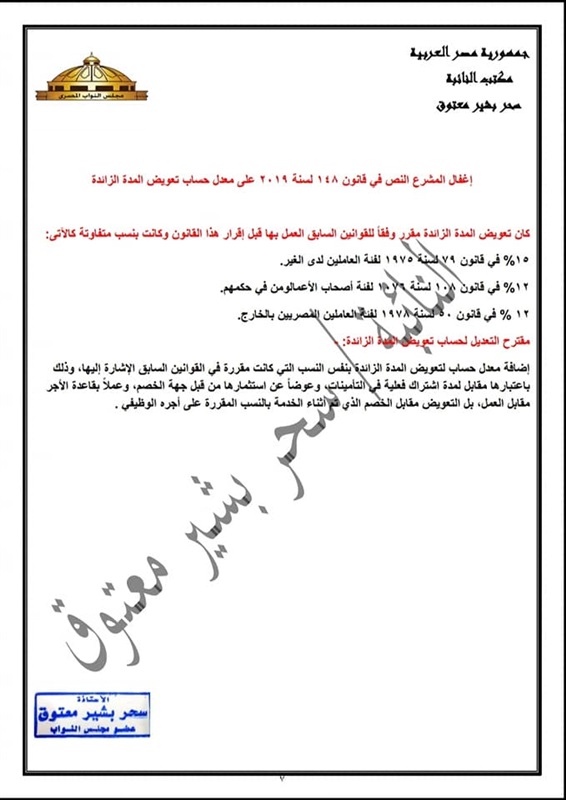 جمهورية مصر العربية
مكتب النائبة
سحر بشير معتوق
مجلس النواب المصرى
إغفال المشرع النص في قانون ١٤٨ لسنة ٢٠١٩ على معدل حساب تعويض المدة الزائدة
كان تعويض المدة الزائدة مقرر وفقاً للقوانين السابق العمل بها قبل إقرار هذا القانون وكانت بنسب متفاوتة كالأتى:
١٥% في قانون ٧٩ لسنة ١٩٧٥ لفئة العاملين لدى الغير.
١٢% في قانون ١٠٨ لسنة ١٠٧٦ لفئة أصحاب الأعمالومن في حكمهم.
١٢ % في قانون ٥٠ لسنة ١٩٧٨ لفئة العاملين المصريين بالخارج.
مقترح التعديل لحساب تعويض المدة الزائدة: -
إضافة معدل حساب لتعويض المدة الزائدة بنفس النسب التي كانت مقررة في القوانين السابق الإشارة إليها، وذلك
باعتبارها مقابل لمدة اشتراك فعلية في التأمينات، وعوضاً عن استثمارها من قبل جهة الخصم، وعملاً بقاعدة الأجر
مقابل العمل، بل التعويض مقابل الخصم الذي تم أثناء الخدمة بالنسب المقررة على أجره الوظيفي .
النائبة / سحر بشير معتوق
الأستاذة
سحر بشير معتوق
عضو مجلس النواب
٧